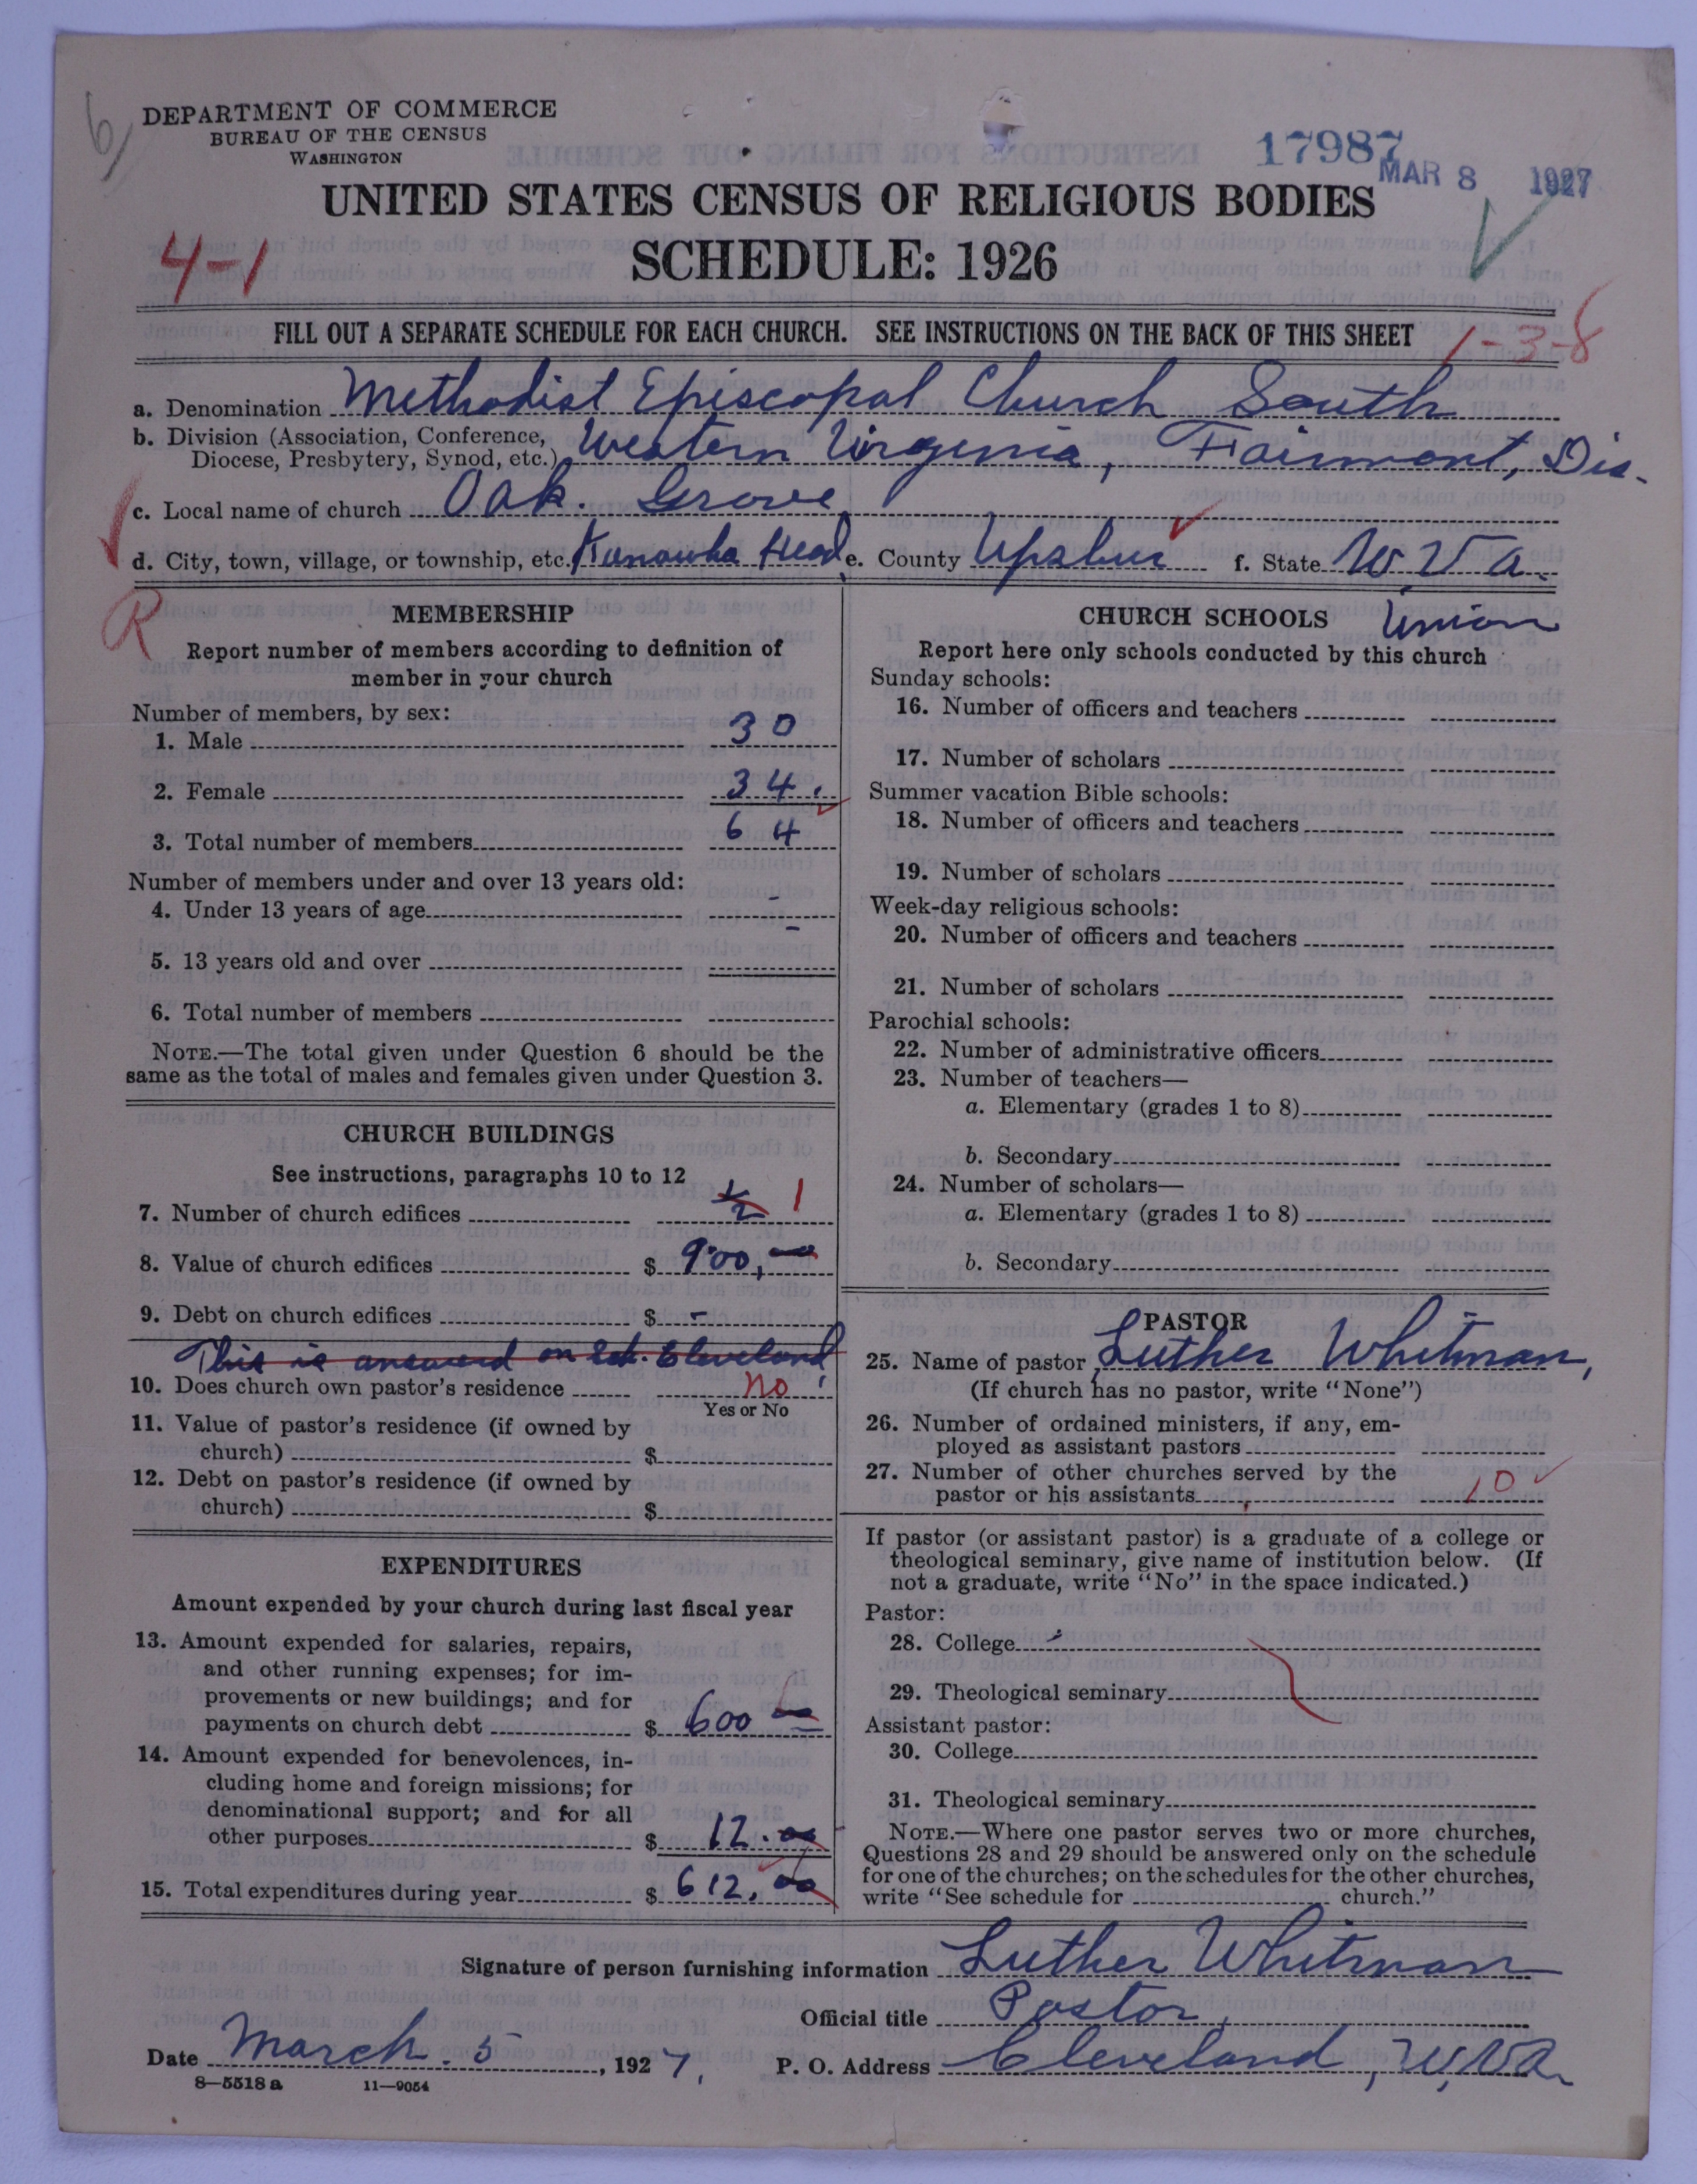 6
DEPARTMENT OF COMMERCE
BUREAU OF THE CENSUS
WASHINGTON
17987
MAR 8 1927
UNITED STATES CENSUS OF RELIGIOUS BODIES
4-1
SCHEDULE: 1926
FILL OUT A SEPARATE SCHEDULE FOR EACH CHURCH. SEE INSTRUCTIONS ON THE BACK OF THIS SHEET
1-3-8
a. Denomination Methodist Episcopal Church South
b. Division (Association, Conference, Diocese, Presbytery, Synod, etc.) Western Virginia, Fairmont, Dis.
c. Local name of church Oak. Grove
d. City, town, village, or township, etc. Kanawha Head e. County Upshur f. State W. Va.
R
MEMBERSHIP
Report number of members according to definition of
member in your church
Number of members, by sex:
1. Male 30
2. Female 34.
3. Total number of members 64
Number of members under and over 13 years old:
4. Under 13 years of age -
5. 13 years old and over -
6. Total number of members
NOTE.—The total given under Question 6 should be the
same as the total of males and females given under Question 3.
CHURCH BUILDINGS
See instructions, paragraphs 10 to 12
7. Number of church edifices 1/2 1
8. Value of church edifices $ 900,00
9. Debt on church edifices $ -
This is answered on Sch. Cleveland
10. Does church own pastor's residence no
Yes or No
11. Value of pastor's residence (if owned by
church) $
12. Debt on pastor's residence (if owned by
church) $
EXPENDITURES
Amount expended by your church during last fiscal year
13. Amount expended for salaries, repairs,
and other running expenses; for im-
provements or new buildings; and for
payments on church debt $ 600 00
14. Amount expended for benevolences, in-
cluding home and foreign missions; for
denominational support; and for all
other purposes $ 12.00
15. Total expenditures during year $ 612.00
CHURCH SCHOOLS Union
Report here only schools conducted by this church
Sunday schools:
16. Number of officers and teachers
17. Number of scholars
Summer vacation Bible schools:
18. Number of officers and teachers
19. Number of scholars
Week-day religious schools:
20. Number of officers and teachers
21. Number of scholars
Parochial schools:
22. Number of administrative officers
23. Number of teachers—
a. Elementary (grades 1 to 8)
b. Secondary
24. Number of scholars—
a. Elementary (grades 1 to 8)
b. Secondary
PASTOR
25. Name of pastor Luther Whitman,
(If church has no pastor, write "None")
26. Number of ordained ministers, if any, em-
ployed as assistant pastors
27. Number of other churches served by the
pastor or his assistants 10
If pastor (or assistant pastor) is a graduate of a college or
theological seminary, give name of institution below. (If
not a graduate, write "No" in the space indicated.)
Pastor:
28. College
29. Theological seminary
Assistant pastor:
30. College
31. Theological seminary
NOTE.—Where one pastor serves two or more churches,
Questions 28 and 29 should be answered only on the schedule
for one of the churches; on the schedules for the other churches,
write "See schedule for church."
Signature of person furnishing information Luther Whitman
Official title Pastor
Date March. 5, 1927. P. O. Address Cleveland, W, Va.
8—5518 a 11—9054